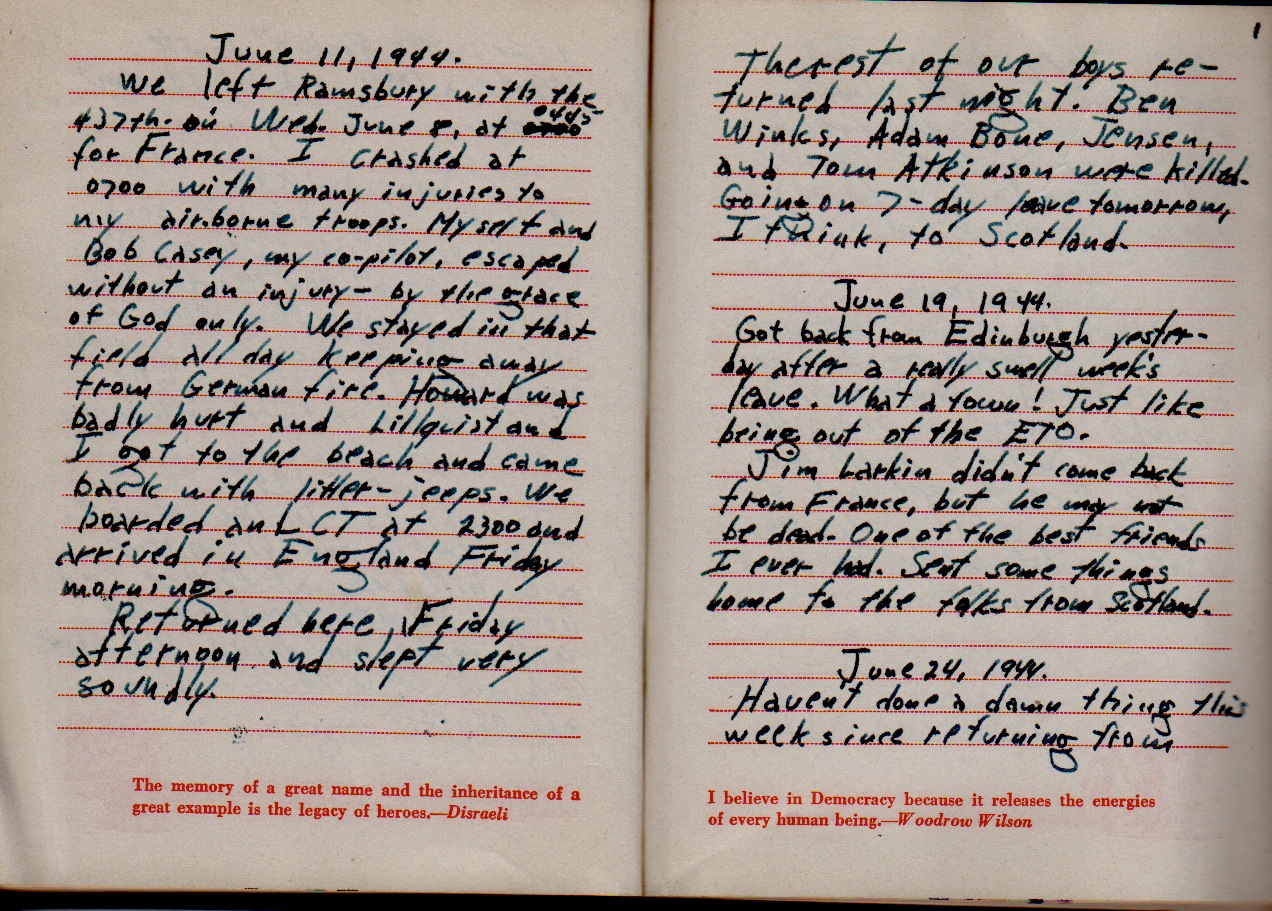 June 11, 1944.
We left Ramsbury with the
0445
437th. on Wed. June 8, at 0700
for France. I crashed at
0700 with many injuries to
my airborne troops. Myself and
Bob Casey, my co-pilot, escaped
without an injury - by the grace
of God only. We stayed in that
field all day keeping away
from German fire. Howard was
badly hurt and Lillquist and
I got to the beach and came
back with litter-jeeps. We
boarded an LCT at 2300 and
arrived in England Friday
morning.
Returned here Friday
afternoon and slept very
soundly.
The memory of a great name and the inheritance of a
great example is the legacy of heroes.—Disraeli
1
The rest of our boys re-
turned last night. Ben
Winks, Adam Bone, Jensen,
and Tom Atkinson were killed.
Going on 7-day leave tomorrow,
I think, to Scotland.
June 19, 1944.
Got back from Edinburgh yester-
day after a really swell week's
leave. What a town! Just like
being out of the ETO.
Jim Larkin didn't come back
from France, but he may not
be dead. One of the best friends
I ever had. Sent some things
home to the folks from Scotland.
June 24, 1944.
Haven't done a damn thing this
week since returning from
I believe in Democracy because it releases the energies
of every human being.—Woodrow Wilson